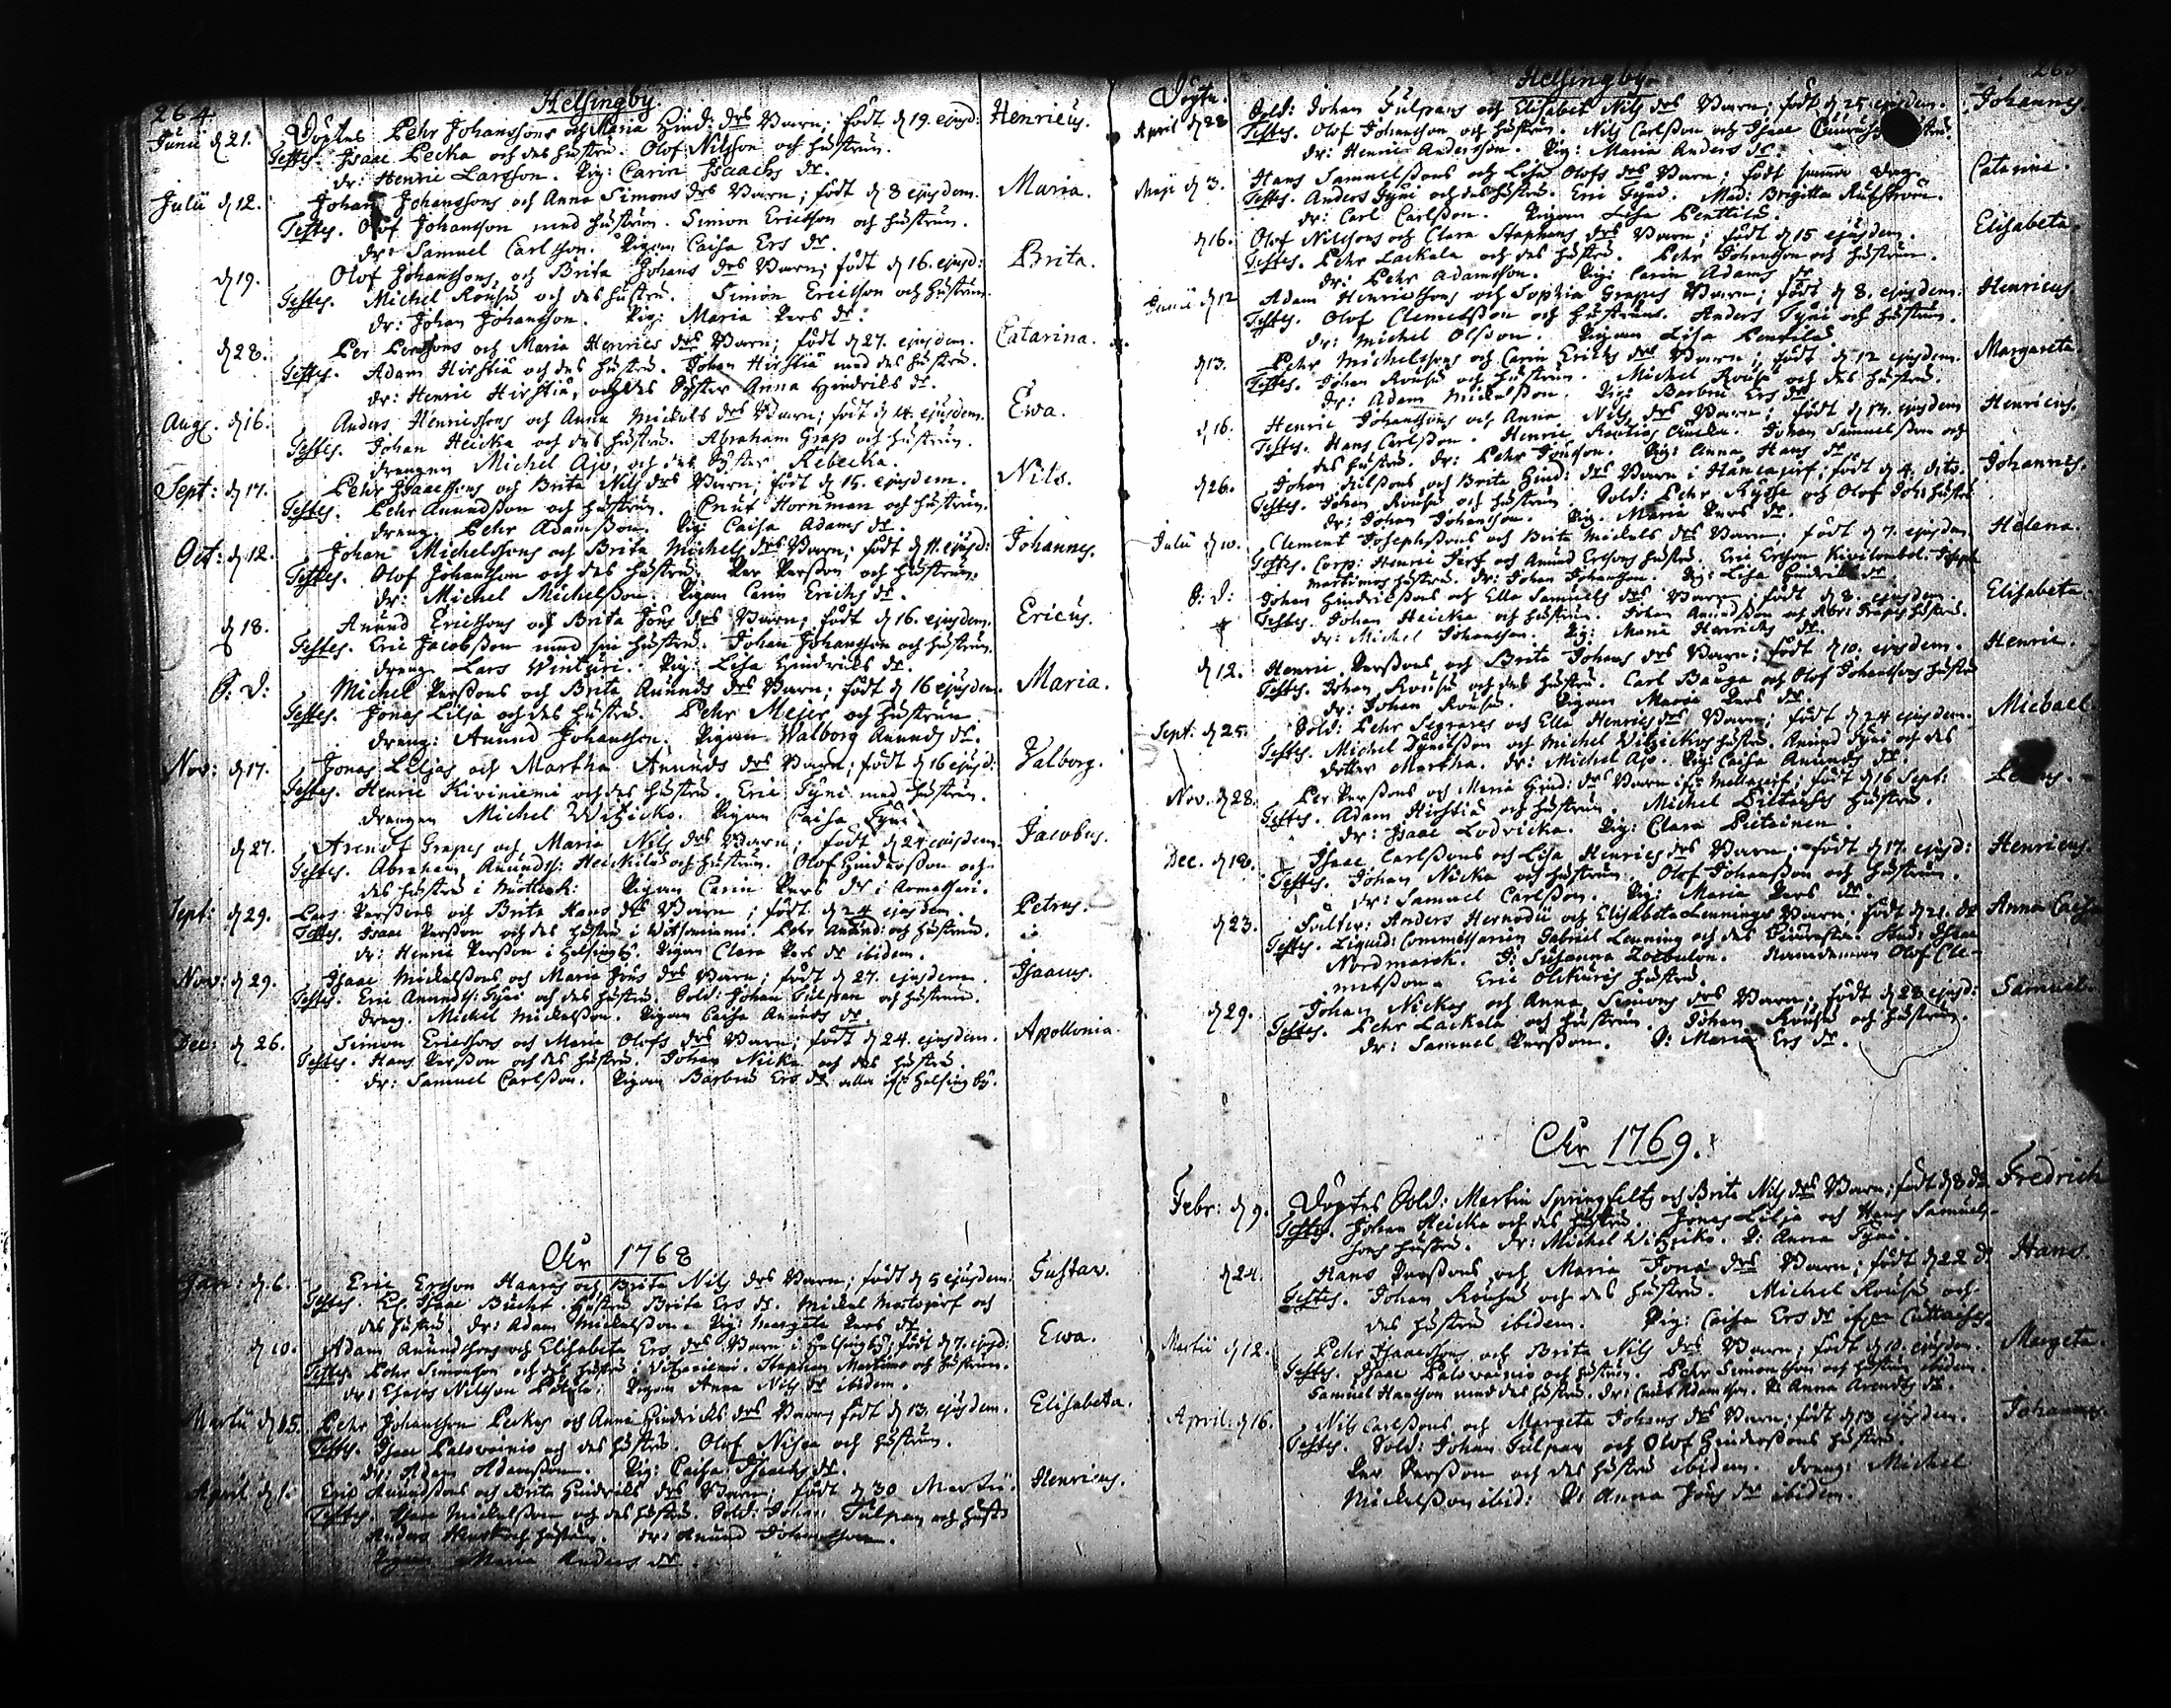 264.
Helsingby.
Junii d 21. Döptes Pehr Johanssons och Maria Hind: drs Barn; födt d 19. ejusd: Henricus.
Testes. Isaac Pecka och des hustru. Olof Nilsson och hustrun.
dr: Henric Larsson. Pig: Carin Isaachs dr.
Julii d 12. Johan Johanssons och Anna Simons drs Barn; födt d 8 ejusdem. Maria.
Testes. Olof Johansson med hustrun. Simon Ericsson och hustrun.
dr: Samuel Carlsson. Pigan Caisa Ers dr.
d 19. Olof Johanssons och Brita Johans drs Barn; födt d 16. ejusd: Brita.
Testes. Michel Rousu och des hustru. Simon Ericsson och hustrun.
dr: Johan Johansson. Pig: Maria Pers dr.
d 28. Per Perssons och Maria Henrics drs Barn; födt d 27. ejusdem. Catarina.
Testes. Adam Hirstiä och des hustru. Johan Hirstiä med des hustru.
dr: Henric Hirstiä, och des Syster Anna Hindriks dr.
Aug. d 16. Anders Henricssons och Anna Mickels drs Barn; födt d 14 ejusdem. Ewa.
Testes. Johan Heicka och des hustru. Abraham Grape och hustrun.
drengen Michel Ajo, och des Syster Rebecka.
Sept: d 17. Pehr Isaacssons och Brita Nils drs Barn; födt d 15. ejusdem. Nils.
Testes. Pehr Anundsson och hustrun. Cnut Hornman och hustrun.
dreng: Pehr Adamsson. Pig: Caisa Adams dr.
Oct: d 12. Johan Michelssons och Brita Michels drs Barn; födt d 11. ejusd: Johannes.
Testes. Olof Johansson och des hustru. Per Persson och hustrun.
dr: Michel Michelsson. Pigan Carin Erichs dr.
d 18. Anund Ericssons och Brita Jöns drs Barn; födt d 16. ejusdem. Ericus.
Testes. Eric Jacobsson med sin hustru. Johan Johansson och hustrun.
dreng: Lars Winturi. Pig: Lisa Hindriks dr.
S: D: Michel Perssons och Brita Anunds drs Barn; födt d 16 ejusdem. Maria.
Testes. Jonas Lilja och des hustru. Pehr Mejer och hustrun
dreng: Anund Johansson. Pigan Walborg Anunds dr.
Nov: d 17. Jonas Liljas och Martha Anunds drs Barn; födt d 16 ejusd: Valborg.
Testes. Henric Kiviniemi och des hustru. Eric Fyni med hustrun.
drengen Michel Witzicko. Pigan Caisa Fyni.
d 27. Arendt Grapes och Maria Nils drs Barn; födt d 24 ejusdem. Jacobus.
Testes. Abraham Anundss: Heickilä och hustrun. Olof Hindersson och
des hustru i Pigan Carin Pers dr i Armassari.
Sept: d 29. Lars Perssons och Brita Hans drs Barn; födt d 24 ejusdem. Petrus.
Testes. Isaac Persson och des hustru i Witsaniemi. Pehr Anund: och hustrun.
dr: Henric Persson i Helsingby. Pigan Clara Pers dr ibidem.
Nov: d 29. Isaac Mickelssons och Maria Jöns drs Barn; födt d 27. ejusdem. Isaacus.
Testes. Eric Anundss: Fyni och des hustru. Sold: Johan Tulpan och hustrun.
dreng. Mickel Mickelsson. Pigan Caisa Anunds dr.
Dec: d 26. Simon Ericssons och Maria Olofs drs Barn; födt d 24. ejusdem. Apollonia.
Testes. Hans Persson och des hustru. Johan Nicka och des hustru.
dr: Samuel Carlsson. Pigan Barbru Ers dr alla ifr Helsingby.
År 1768
Jan: d 6. Eric Ersson Haaras och Brita Nils drs Barn; födt d 5 ejusdem. Gustav.
Testes. Isaac Bucht. Hustru Brita Ers dr. Mickel Martojerf och
des hustru. dr: Adam Mickelsson. Pig: Margeta Pers dr.
d 10. Adam Anundssons och Elisabeta Ers drs Barn i Helsingby; födt d 7. ejusd: Ewa.
Testes. Pehr Simonsson och des hustru i Vitzaniemi. Staphan Martimo och hustrun.
dr: Nilsson Pigan Anna Nils dr ibidem.
Martii d 15. Pehr Johansson Peckas och Anna Hindricks drs Barn, födt d 13. ejusdem. Elisabeta.
Testes. Isaac Palovainio och des hustru. Olof Nissa och hustrun.
dr: Adam Adamsson. Pig: Caisa Isaachs dr.
April d 1. Eric Anundssons och Brita Hindriks drs Barn; födt d 30 Martii. Henricus.
Testes. Isaac Mickelsson och des hustru. Sold: Johan Tulpan och hustr:
Anders och hustrun. dr: Anund Johansson.
Pigan Maria Anders dr.
265
Helsingby
Döpta.
April d 28 Sold: Johan Tulpans och Elisabet Nils drs Barn; födt d 25 ejusdem. Johannes.
Testes. Olof Johansson och hustrun. Nils Carlsson och Isaac
dr: Henric Andersson. Pig: Maria Anders dr.
Maji d 3. Hans Samuelssons och Lisa Olofs drs Barn; födt samma dag. Catarina.
Testes. Anders Fyni och des hustru. Eric Fyni. Mad: Brigitta
dr: Carl Carlsson. Pigan Lisa Penttilä.
d 16. Olof Nilssons och Clara Staphans drs Barn; födt d 15 ejusdem. Elisabeta.
Testes. Pehr Lackala och des hustru. Pehr Johansson och hustrun.
dr: Pehr Adamsson. Pig: Carin Adams dr.
Junii d 12 Adam Henricssons och Sophia Grapes Barn; födt d 8. ejusdem: Henricus
Testes. Olof Clemetsson och hustrun. Anders Fyni och hustrun.
dr: Michel Olsson. Pigan Lisa Penttilä.
d 13. Pehr Michelssons och Carin Erichs drs Barn; födt d 12 ejusdem. Margareta.
Testes. Johan Rousu och hustrun. Michel Rousu och des hustru.
dr: Adam Mickelsson. Pig: Barbru Ers dr.
d 16. Henric Johanssons och Anna Nils drs Barn; födt d 13. ejusdem Henricus.
Testes. Hans Carlsson. Henric Johan Samuelsson och
des hustru. dr: Pehr Pig: Anna Hans dr
d 26. Johan Nilssons och Brita Hind: drs Barn i födt d 4. dito. Johannes.
Testes. Johan Rousu och hustrun. Sold: Pehr och Olof Johs hustru
dr: Johan Johansson. Pig. Maria Pers dr.
Julii d 10. Clement Josephssons och Brita Mickels drs Barn; födt d 7. ejusdem Helena.
Testes. Corp: Henric Jerf och Anund Erssons hustru. Eric Ersson Joseph
Martimos hustru. dr: Johan Johansson. Pig: Lisa Hindriks dr.
S: D: Johan Hindrikssons och Ella Samuels drs Barn; födt d 8. ejusdem. Elisabeta.
Testes. Johan Heicka och hustrun. Johan Anundsson och Abr: Grapes hustru.
dr: Michel Johansson. Pig: Maria Henrichs dr.
d 12. Henric Perssons och Brita Johans drs Barn; födt d 10. ejusdem. Henric.
Testes. Johan Rousu och des hustru. Carl Bauga och Olof Johanssons hustru
dr: Johan Rousu. Pigan Maria Pers dr.
Sept: d 25. Sold: Pehr Segrares och Ella Henrics drs Barn; födt d 24 ejusdem. Michael.
Testes. Michel och Michel Witzickos hustru. Anund Fyni och des
dotter Martha. dr: Michel Ajo. Pig: Caisa Anunds dr.
Nov. d 28. Per Perssons och Maria Hind: drs Barn födt d 16 Sept:
Testes. Adam Hirstiä och hustrun. Michel hustru.
dr: Isaac Lodvicka. Pig: Clara Pietainen.
Dec. d 18. Isaac Carlssons och Lisa Henrics drs Barn; födt d 17. ejusd: Henricus.
Testes. Johan Nicka och hustrun. Olof Johansson och hustrun.
dr: Samuel Carlsson. Pig: Maria Pers dr.
d 23. Anders Hernodii och Elisabeta Lennings Barn: födt d 21. dr Anna Caisa
Testes. Liquid: Commissarien Gabriel Lenning och des Isaac
Nordmarck. J: Susanna Nemndeman Olof Cle-
metsson. Eric hustru.
d 29. Johan Nickas och Anna Simons drs Barn; födt d 28 ejusd: Samuel.
Testes. Pehr Lackala och hustrun. Johan Rousu och hustrun.
dr: Samuel Persson. P: Maria Ers dr.
År 1769.
Febr: d 9. Döptes Sold: Martin Springfeltz och Brita Nils drs Barn; födt d 8 ds Fredrich
Testes. Johan Heicka och des hustru. Jonas Lilja och Hans Samuels-
sons hustru. dr: Michel Witzicko. P: Anna Fyni.
d 24. Hans Perssons och Maria Jöns drs Barn; födt d 22 ds Hans
Testes. Johan Rousu och des hustru. Michel Rousu och
des hustru ibidem. Pig: Caisa Ers dr
Martii d 12. Pehr Isaacssons och Brita Nils drs Barn; födt d 10. ejusdem. Margeta.
Testes. Isaac Palovainio och hustrun. Pehr Simonsson och hustrun ibidem.
Samuel Hansson med des hustru. dr: Cnut Adamsson. P: Anna Arendts dr.
April: d 16. Nils Carlssons och Margeta Johans drs Barn; födt d 13 ejusdem. Johannes.
Testes. Sold: Johan Tulpan och Olof Hinderssons hustru
Per Persson och des hustru ibidem. dreng: Michel
Mickelsson ibid: P: Anna Jöns dr ibidem.